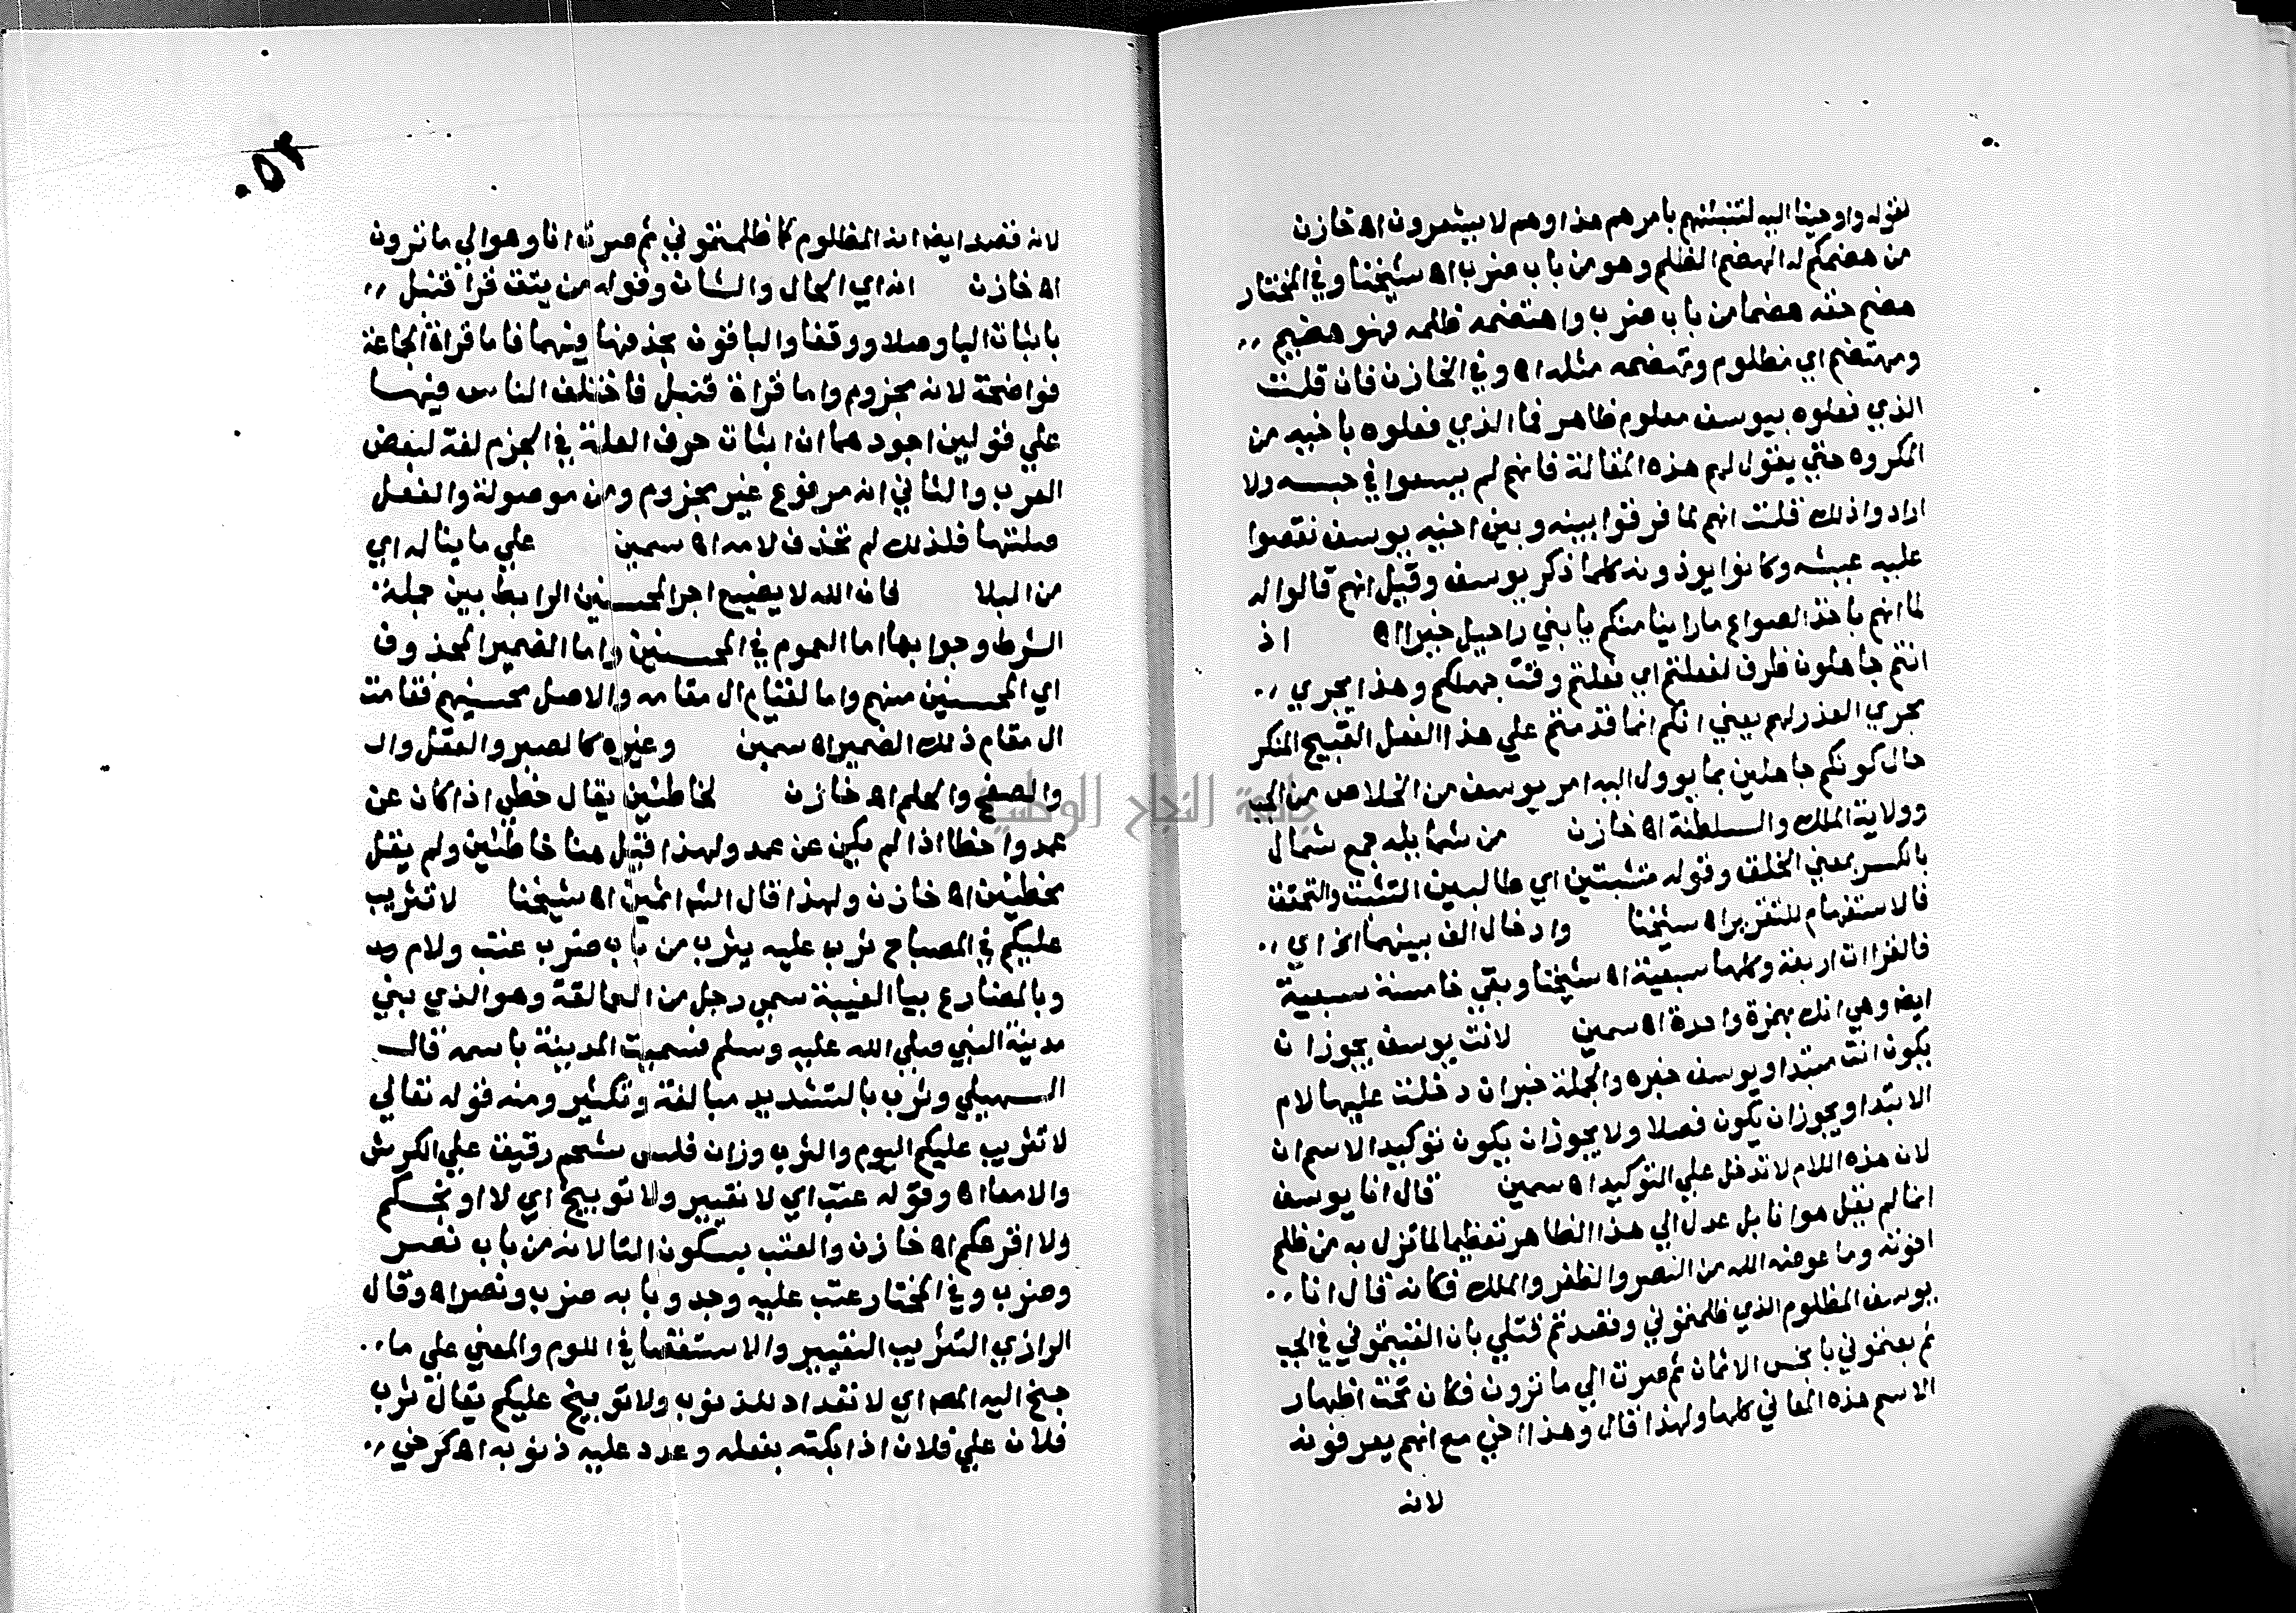 لقوله واوحينا اليه لتنبئنهم بامرهم هذا وهم لا يشعرون اه خازن
من هضمكم له الهضم الظلم وهو من باب ضرب اه شيخنا وفي المختار
هضم حقه هضما من باب ضرب واهتضمه ظلمه فهو هضيم ,,
ومهتضم اي مظلوم وتهضمه مثله اه وفي الخازن فان قلت
الذي فعلوه بيوسف معلوم ظاهر فما الذي فعلوه باخيه من
المكروه حتي يقول لهم هذه المقالة فانهم لم يسعوا في حبسه ولا
ارادوا ذلك قلت انهم لما فرقوا بينه وبين اخيه يوسف نغصوا
عليه عيشه وكانوا يوذونه كلما ذكر يوسف وقيل انهم قالوا له
لما اتهم باخذ الصواع ما راينا منكم يا بني راحيل خيرا اه اذ
انتم جاهلون ظرف لفعلتم اي فعلتم وقت جهلكم وهذا يجري ,,
مجري العذر لهم يعني انكم انما قدمتم علي هذا الفعل القبيح المنكر
حال كونكم جاهلين بما يوول اليه امر يوسف من الخلاص من الجب
وولاية الملك والسلطنة اه خازن من شمايله جمع شمال
بالكسر بمعني الخلق وقوله متثبتين اي طالبين التثبت والتحقق
فالاستفهام للتقرير اه شيخنا وادخال الف بينهما الخ اي ,,
فالقراات اربعة وكلها سبعية اه شيخنا وبقي خامسة سبعية
ايضا وهي انك بهمزة واحدة اه سمين لانت يوسف يجوز ان
يكون انت مبتدا ويوسف خبره والجملة خبر ان دخلت عليها لام
الابتدا ويجوز ان يكون فصلا ولا يجوز ان يكون توكيدا لاسم ان
لان هذه اللام لا تدخل علي التوكيد اه سمين قال انا يوسف
انما لم يقل هو انا بل عدل الي هذا الظاهر تعظيما لما نزل به من ظلم
اخوته وما عوضه الله من النصر والظفر والملك فكانه قال انا ,,
يوسف المظلوم الذي ظلمتموني وقصدتم قتلي بان القيتموني في الجب
ثم بعتموني بابخس الاثمان ثم صرت الي ما ترون فكان تحت اظهار
الاسم هذه المعاني كلها ولهذا قال وهذا اخي مع انهم يعرفونه
لانه
٥٣٠
لانه قصد ايضا انه المظلوم كما ظلمتموني ثم صرت انا وهو الي ما ترون
اه خازن انه اي الحال والشان وقوله من يتق قرا قنبل ,,
باثبات اليا وصلا ووقفا والباقون بحذفها فيهما فاما قراة الجماعة
فواضحة لانه مجزوم واما قراة قنبل فاختلف الناس فيها
علي قولين اجودهما ان اثبات حرف العلة في الجزم لغة لبعض
العرب والثاني انه مرفوع غير مجزوم ومن موصولة والفعل
صلتها فلذلك لم تحذف لامه اه سمين علي ما يناله اي
من البلا فان الله لا يضيع اجر المحسنين الرابط بين جملة
الشرط وجوابها اما العموم في المحسنين واما الضمير المحذوف
اي المحسنين منهم واما لقيام ال مقامه والاصل محسنيهم فقامت
ال مقام ذلك الضمير اه سمين وغيره كالصبر والعقل وال
والصفح والحلم اه خازن لخاطئين يقال خطئ اذا كان عن
عمد واخطا اذا لم يكن عن عمد ولهذا قيل هنا خاطئين ولم يقل
مخطئين اه خازن ولهذا قال الش اثمين اه شيخنا لا تثريب
عليكم في المصباح ثرب عليه يثرب من باب ضرب عتب ولام وبه
وبالمضارع بيا الغيبة سمي رجل من العمالقة وهو الذي بني
مدينة النبي صلي الله عليه وسلم فسميت المدينة باسمه قال
السهيلي وثرب بالتشديد مبالغة وتكثير ومنه قوله تعالي
لا تثريب عليكم اليوم والثرب وزان فلس شحم رقيق علي الكرش
والامعا اه وقوله عتب اي لا تعيير ولا توبيخ اي لا اوبخكم
ولا اقرعكم اه خازن والعتب بسكون التا لانه من باب نصر
وضرب وفي المختار عتب عليه وجد وبابه ضرب ونصر اه وقال
الرازي التثريب التعيير والاستقصا في اللوم والمعني علي ما ,,
جنح اليه المص اي لا تعداد للذنوب ولا توبيخ عليكم يقال ثرب
فلان علي فلان اذا بكته بفعله وعدد عليه ذنوبه اه كرخي ,,
جامعة النجاح الوطنية